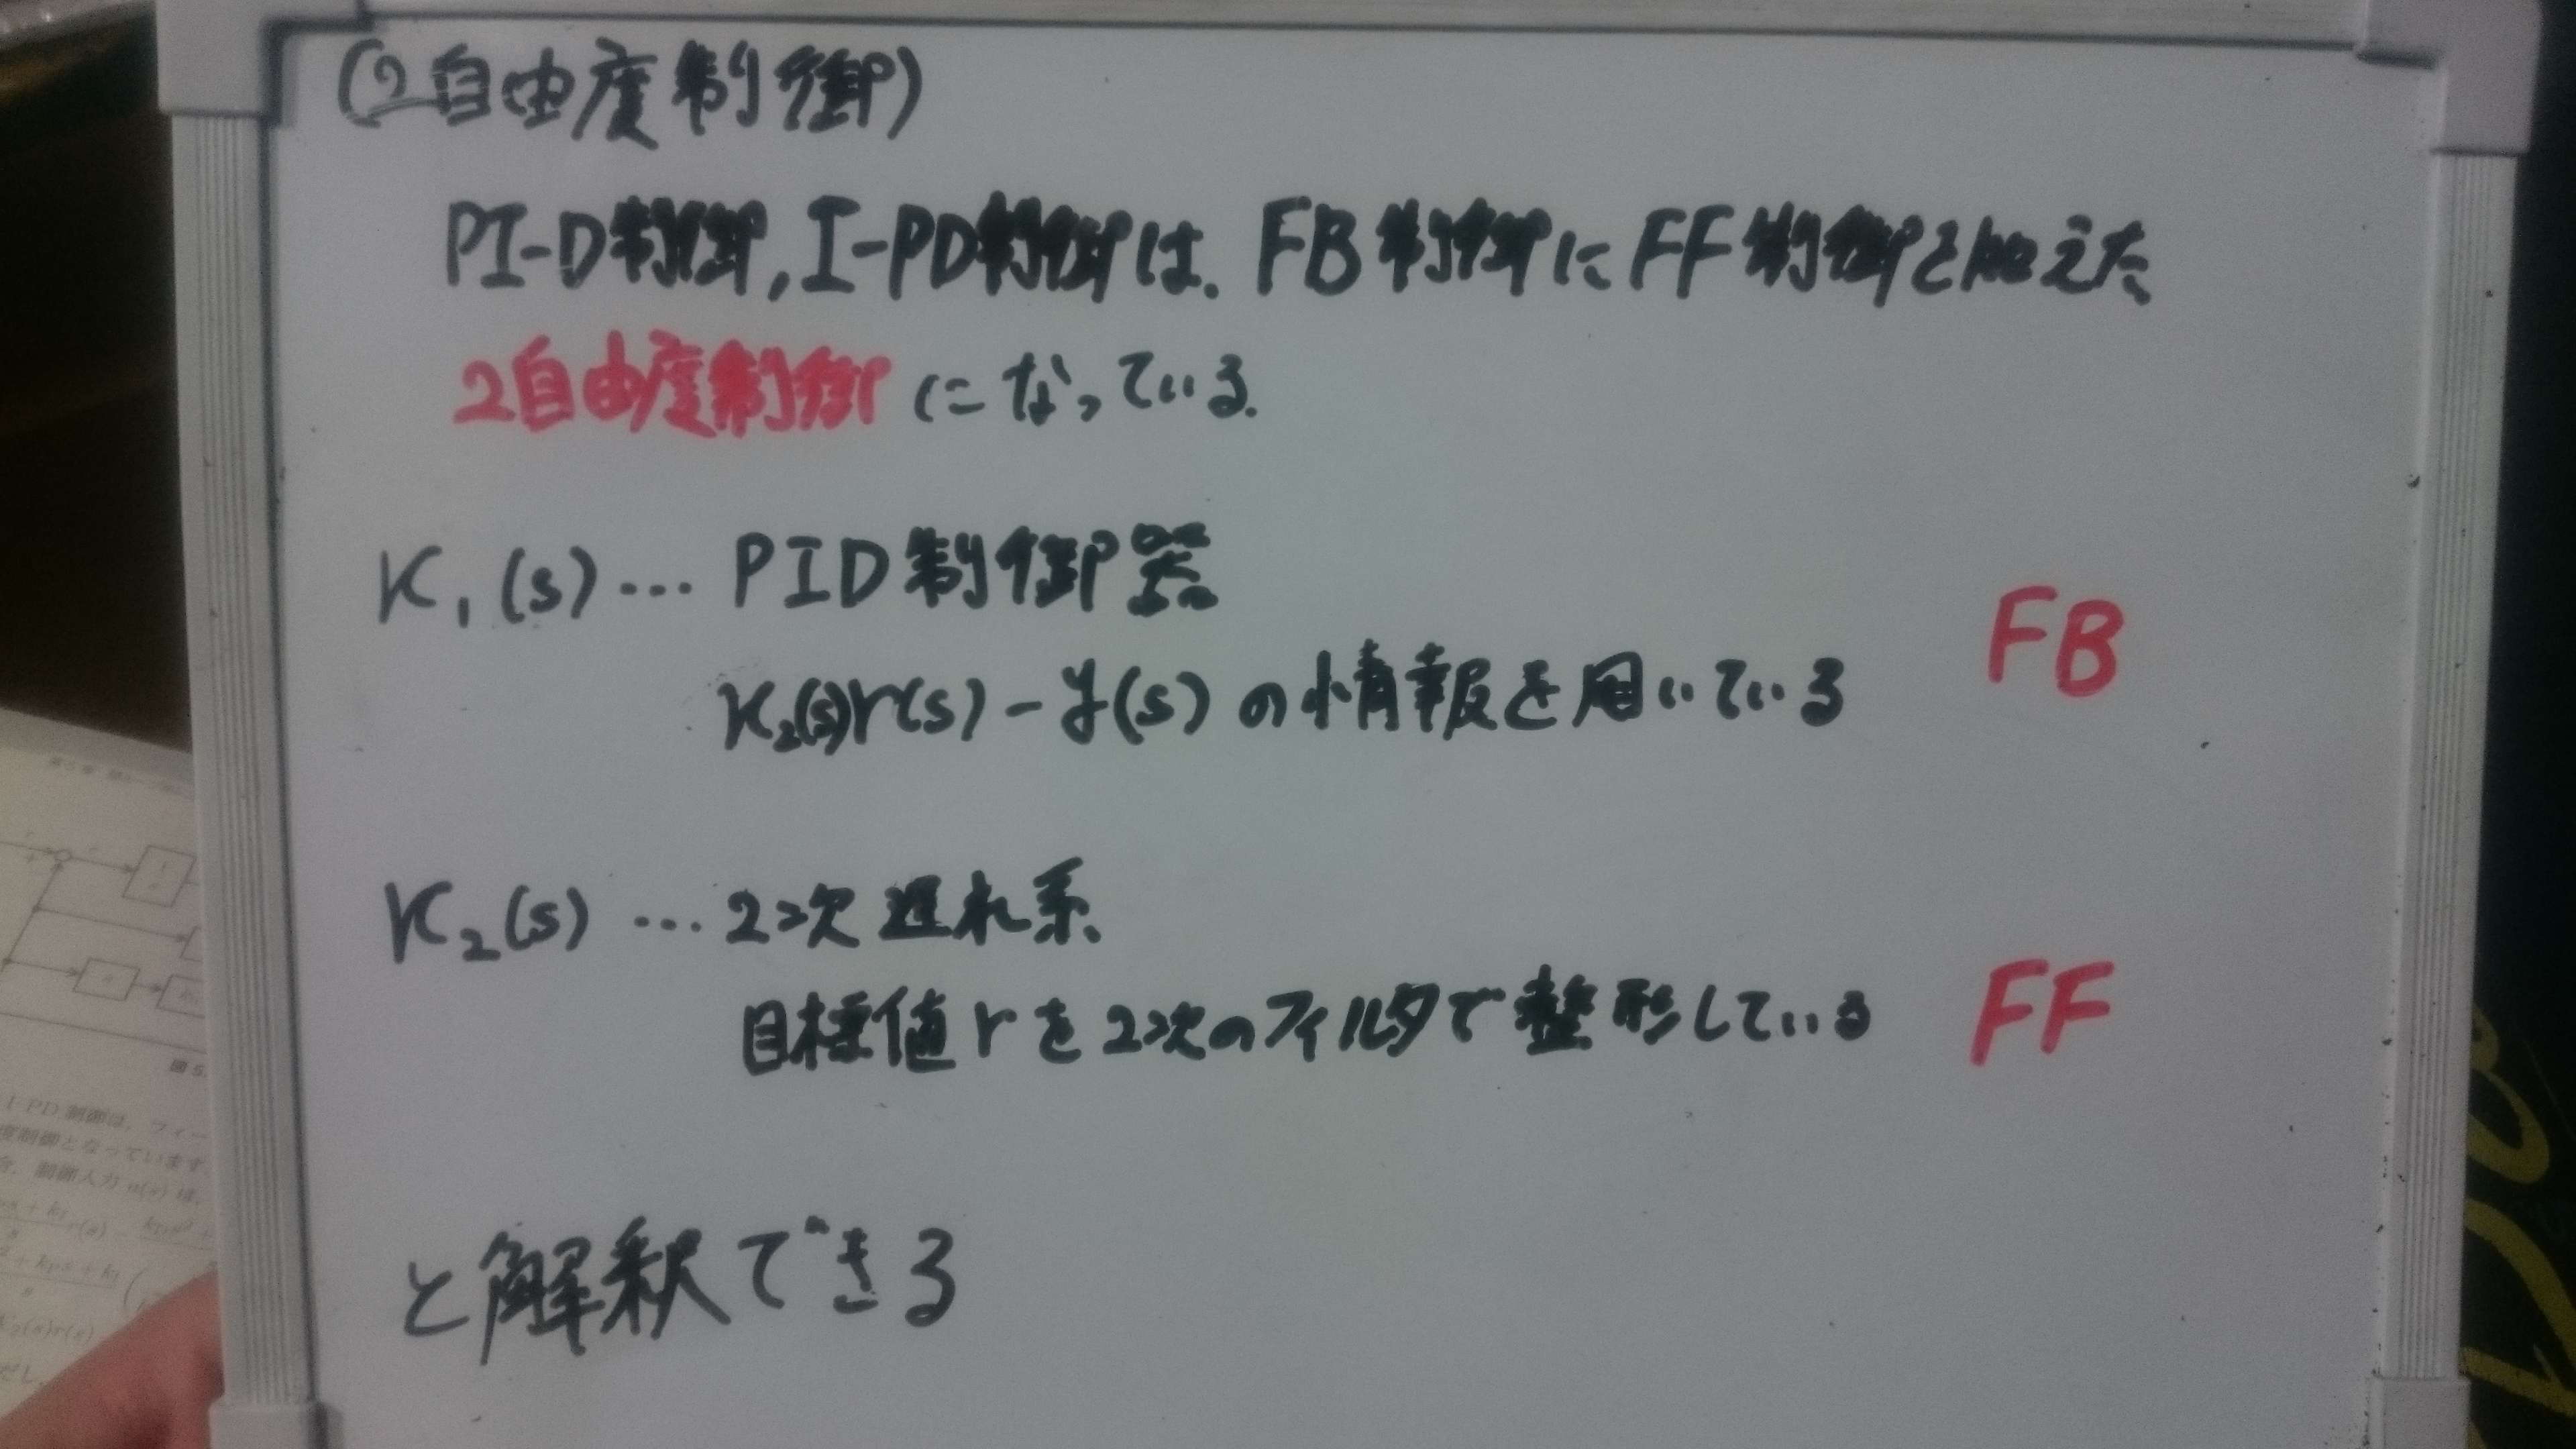 (2自由度制御)
PI-D制御,I-PD制御は.FB制御にFF制御を加えた
2自由度制御になっている.
K₁(s)…PID制御器
K₂(s)r(s)-y(s)の情報を用いている
FB
K₂(s)…2次遅れ系
目標値rを2次のフィルタで整形している
FF
と解釈できる
図5.
I-PD制御は、フィー
度制御となっています
制御入力u(s)は、